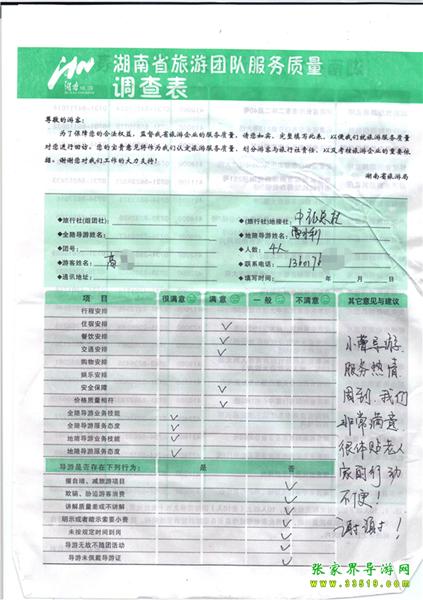 湖南省旅游团队服务质量
调查表
尊敬的游客:
为了保障您的合法权益,监督我省旅游企业的服务质量,请您如实、完整填写此表,以便我们就旅游服务质量
对您进行回访。您的宝贵意见将作为我们认定旅游服务质量、划分游客与旅行社责任,以及考核旅游企业的重要依
据。谢谢您对我们工作的大力支持!
湖南省旅游局
◆旅行社(组团社):
◆(旅行社)地接社:
◆全陪导游姓名:
◆地陪导游姓名:
◆团号:
◆人数:4人
◆游客姓名:高
◆联系电话:1360176
◆通讯地址:
◆填写时间: 年 月 日
项 目 很满意 满意 一般 不满意 其它意见与建议
行程安排
住宿安排 ✓
餐饮安排 ✓
交通安排 ✓
购物安排
娱乐安排
安全保障 ✓
价格质量相符 ✓
全陪导游业务技能 ✓
全陪导游服务态度 ✓
地陪导游业务技能 ✓
地陪导游服务态度 ✓
小曹导游
服务热情
周到.我们
非常满意
很体贴老人
家因行动
不便!
谢谢!
导游是否存在下列行为: 是 否
擅自增、减旅游项目 ✓
欺骗、胁迫游客消费 ✓
讲解质量差或不讲解 ✓
明示或者暗示索要小费 ✓
未按规定时间到岗 ✓
导游无故不随团活动 ✓
导游未佩戴导游证 ✓
张家界导游网
www.33519.com